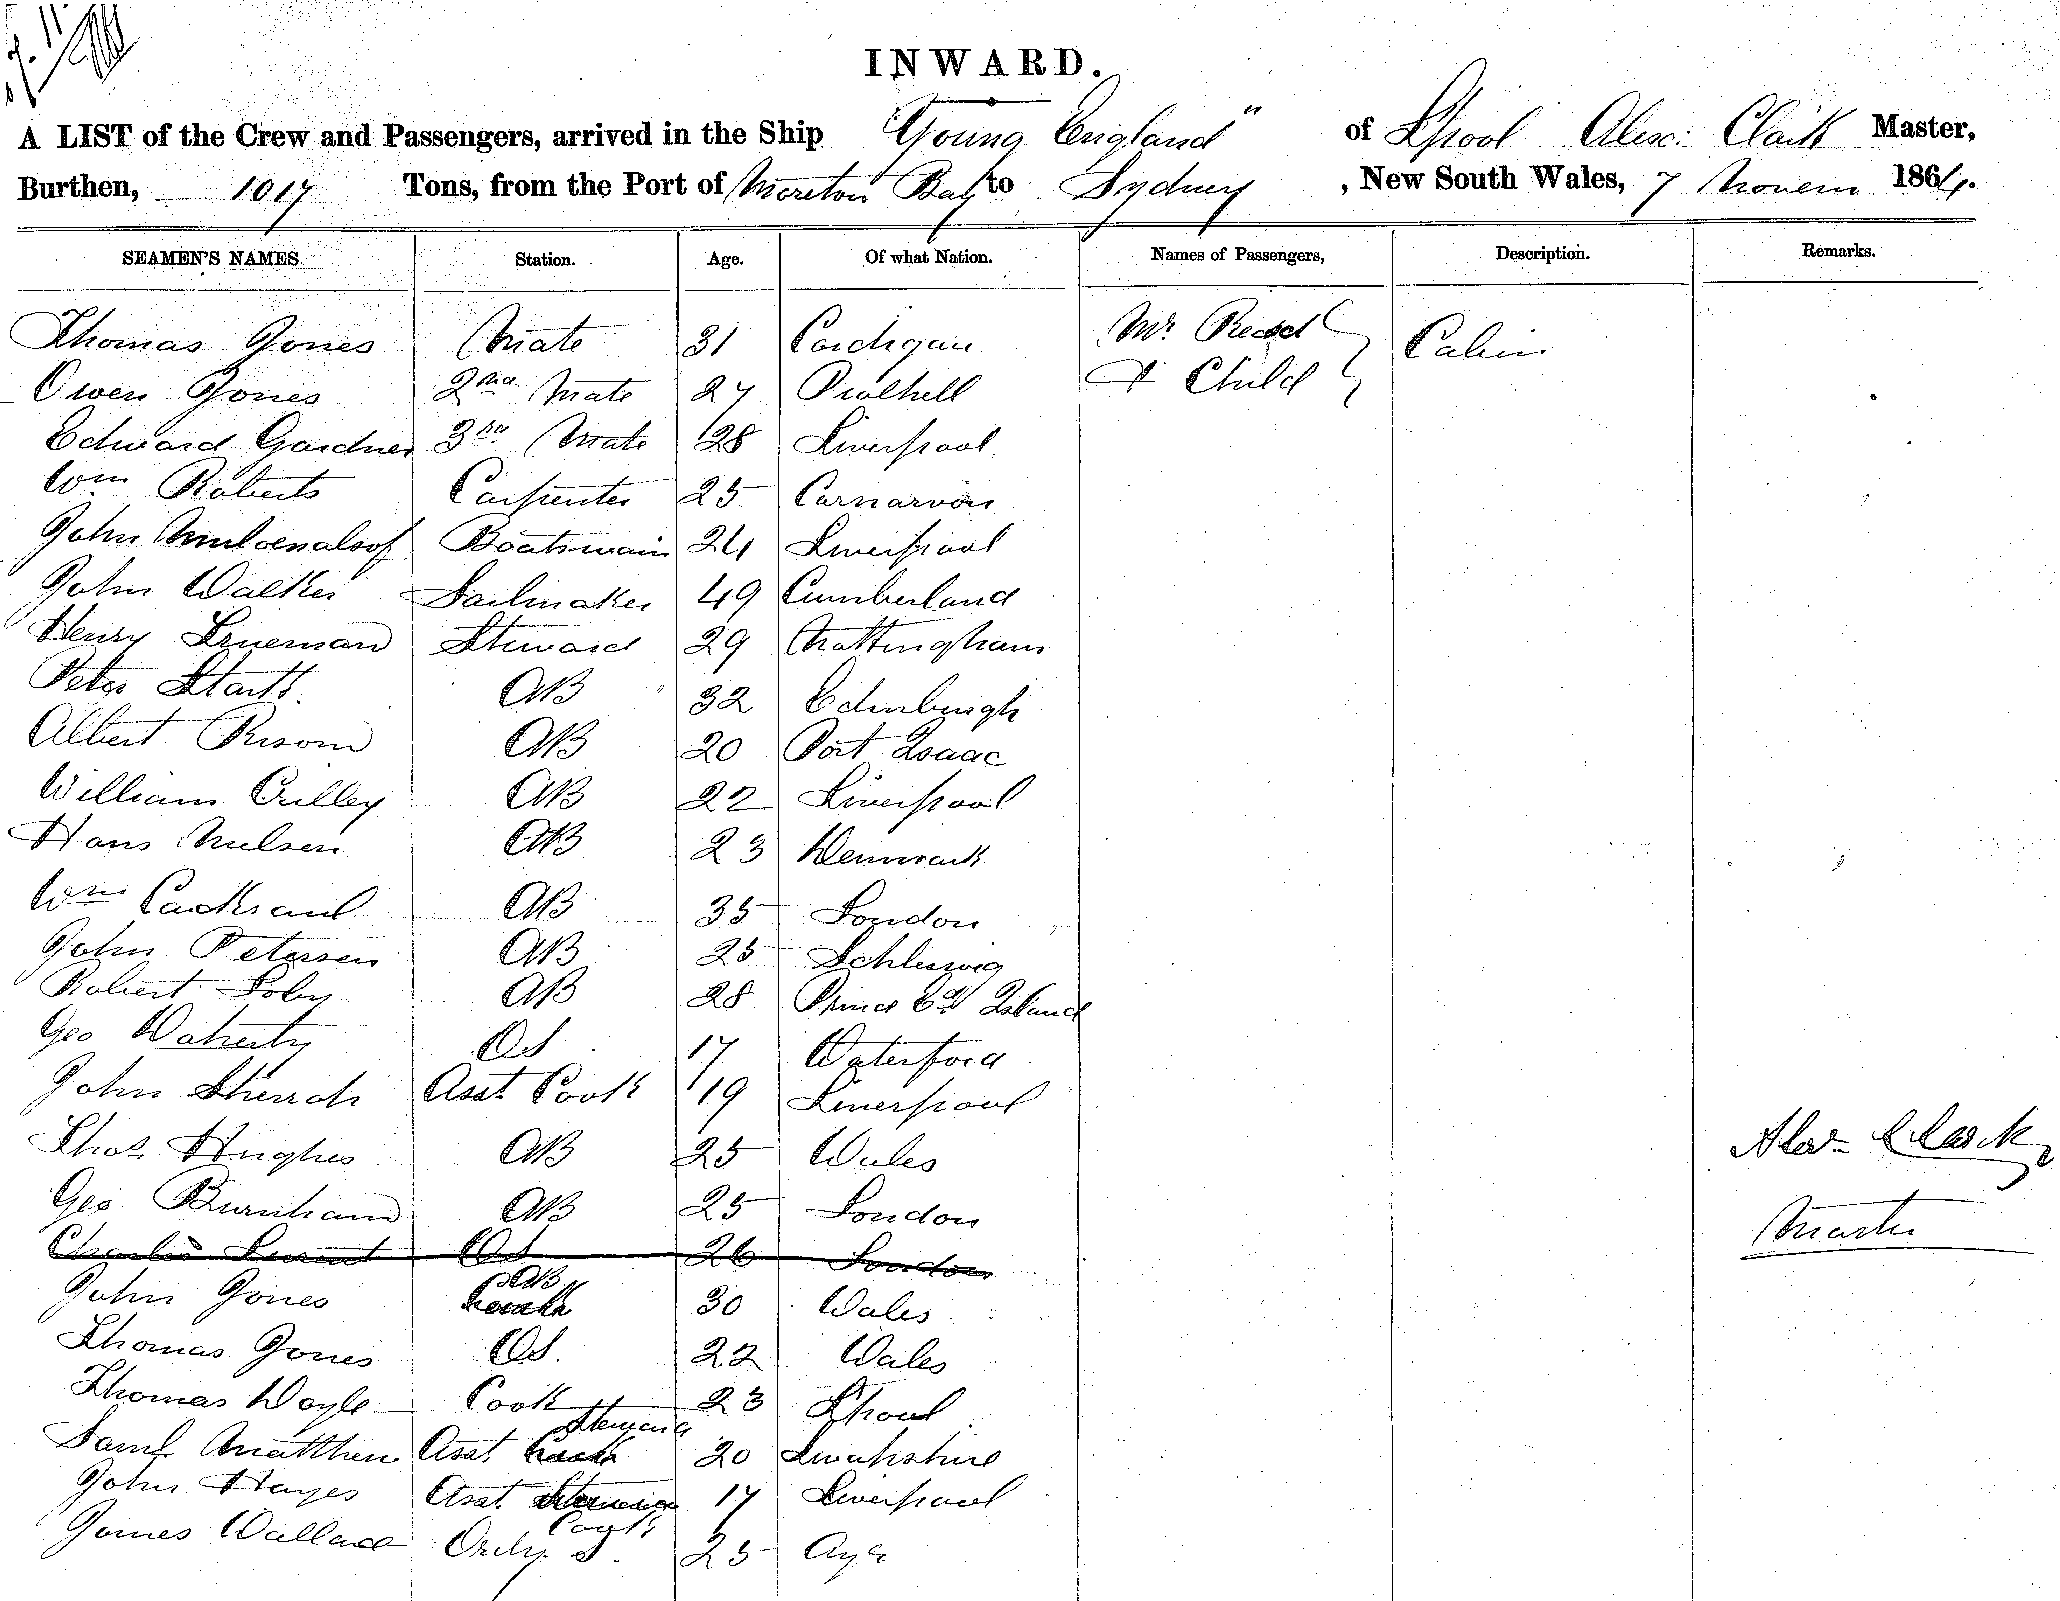 INWARD.
A LIST of the Crew and Passengers, arrived in the Ship "Young England" of Lpool Alexr: Clark Master,
Burthen, 1017 Tons, from the Port of Moreton Bay to Sydney, New South Wales, 7 Novem 1864.
SEAMEN'S NAMES Station. Age. Of what Nation. Names of Passengers, Description. Remarks.
Thomas Jones Mate 31 Cardigan Mr. Cabin
Owen Jones 2nd Mate 27 Pwlhell & Child
Edward Gardner 3rd Mate 28 Liverpool
Wm Roberts Carpenter 25 Carnarvon
John Boatswain 24 Liverpool
John Walker Sailmaker 49 Cumberland
Henry Steward 29 Nottingham
Peter Stark AB 32 Edinburgh
Albert Prisom AB 20 Port Isaac
William Crilley AB 22 Liverpool
Hans Nielsen AB 23 Denmark
Wm AB 35 London
John Petersen AB 25 Schleswig
Robert Soby AB 28 Prince Ed Island
Geo Doherty OS 17 Waterford
John Asst Cook 19 Liverpool
Thos Hughes AB 25 Wales
Alexr Clark
Geo Burnham AB 25 London
Master
Charles OS 26 London
AB
John Jones Cook 30 Wales
Thomas Jones OS. 22 Wales
Thomas Doyle Cook 23 Lpool
Steward
Saml Matthew Asst Cook 20
John Hayes Asst Steward 17 Liverpool
Cook
James Wallace Ordy S 25 Ayr